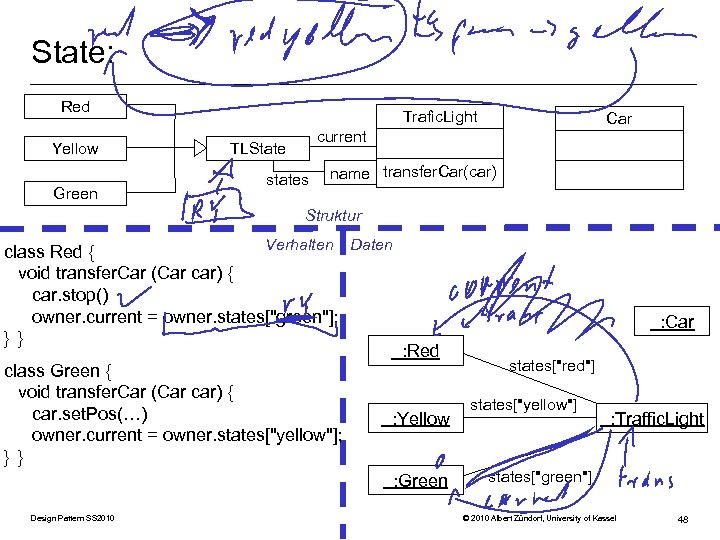 State:
red red yellow green yellow
Red
Trafic.Light
Car
Yellow
TLState
current
states
name transfer.Car(car)
Green
RY
Struktur
Verhalten
Daten
class Red {
void transfer.Car (Car car) {
car.stop()
ry
owner.current = owner.states["green"];
} }
class Green {
void transfer.Car (Car car) {
car.set.Pos(…)
owner.current = owner.states["yellow"];
} }
current
trans
: Car
: Red
states["red"]
: Yellow
states["yellow"]
: Traffic.Light
: Green
states["green"]
trans
current
Design Pattern SS2010
© 2010 Albert Zündorf, University of Kassel
48